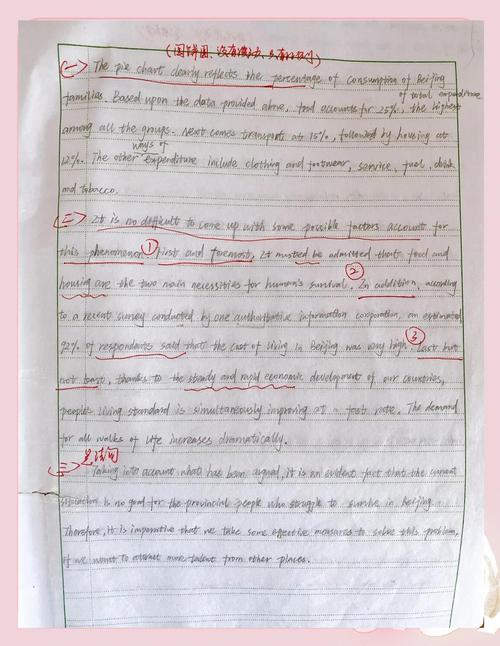 (一) The pie chart clearly reflects the percentage of consumption of Beijing
of total expenditure
families. Based upon the data provided above, food accounts for 25%, the highest
among all the groups. Next comes transport at 15%, followed by housing at
ways of
12%. The other expenditure include clothing and footwear, service, fuel, drink
and tobacco.
(二) It is no difficult to come up with some possible factors account for
this phenomenon. ① First and foremost, It must be admitted that food and
②
housing are the two main necessities for human's survival. In addition, according
to a recent survey conducted by one authoritative information corporation, an estimated
③
92% of respondents said that the cost of living in Beijing was very high. Last but
not least, thanks to the steady and rapid economic development of our countries,
people's living standard is simultaneously improving at a fast rate. The demand
for all walks of life increases dramatically.
(三) Taking into account what has been argued, it is an evident fact that the current
situation is no good for the provincial people who struggle to survive in Beijing
Therefore, it is imperative that we take some effective measures to solve this problem,
if we want to attract more talent from other places.